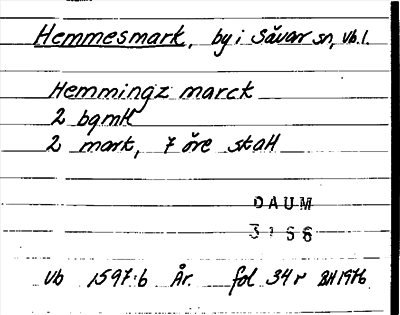 Hemmesmark, by i Sävar sn, Vb. l.
Hemmingz marck
2 bgmk
2 mark, 7 öre skatt
DAUM
3196
Vb 1597:6 År. fol 34 r BH 1976